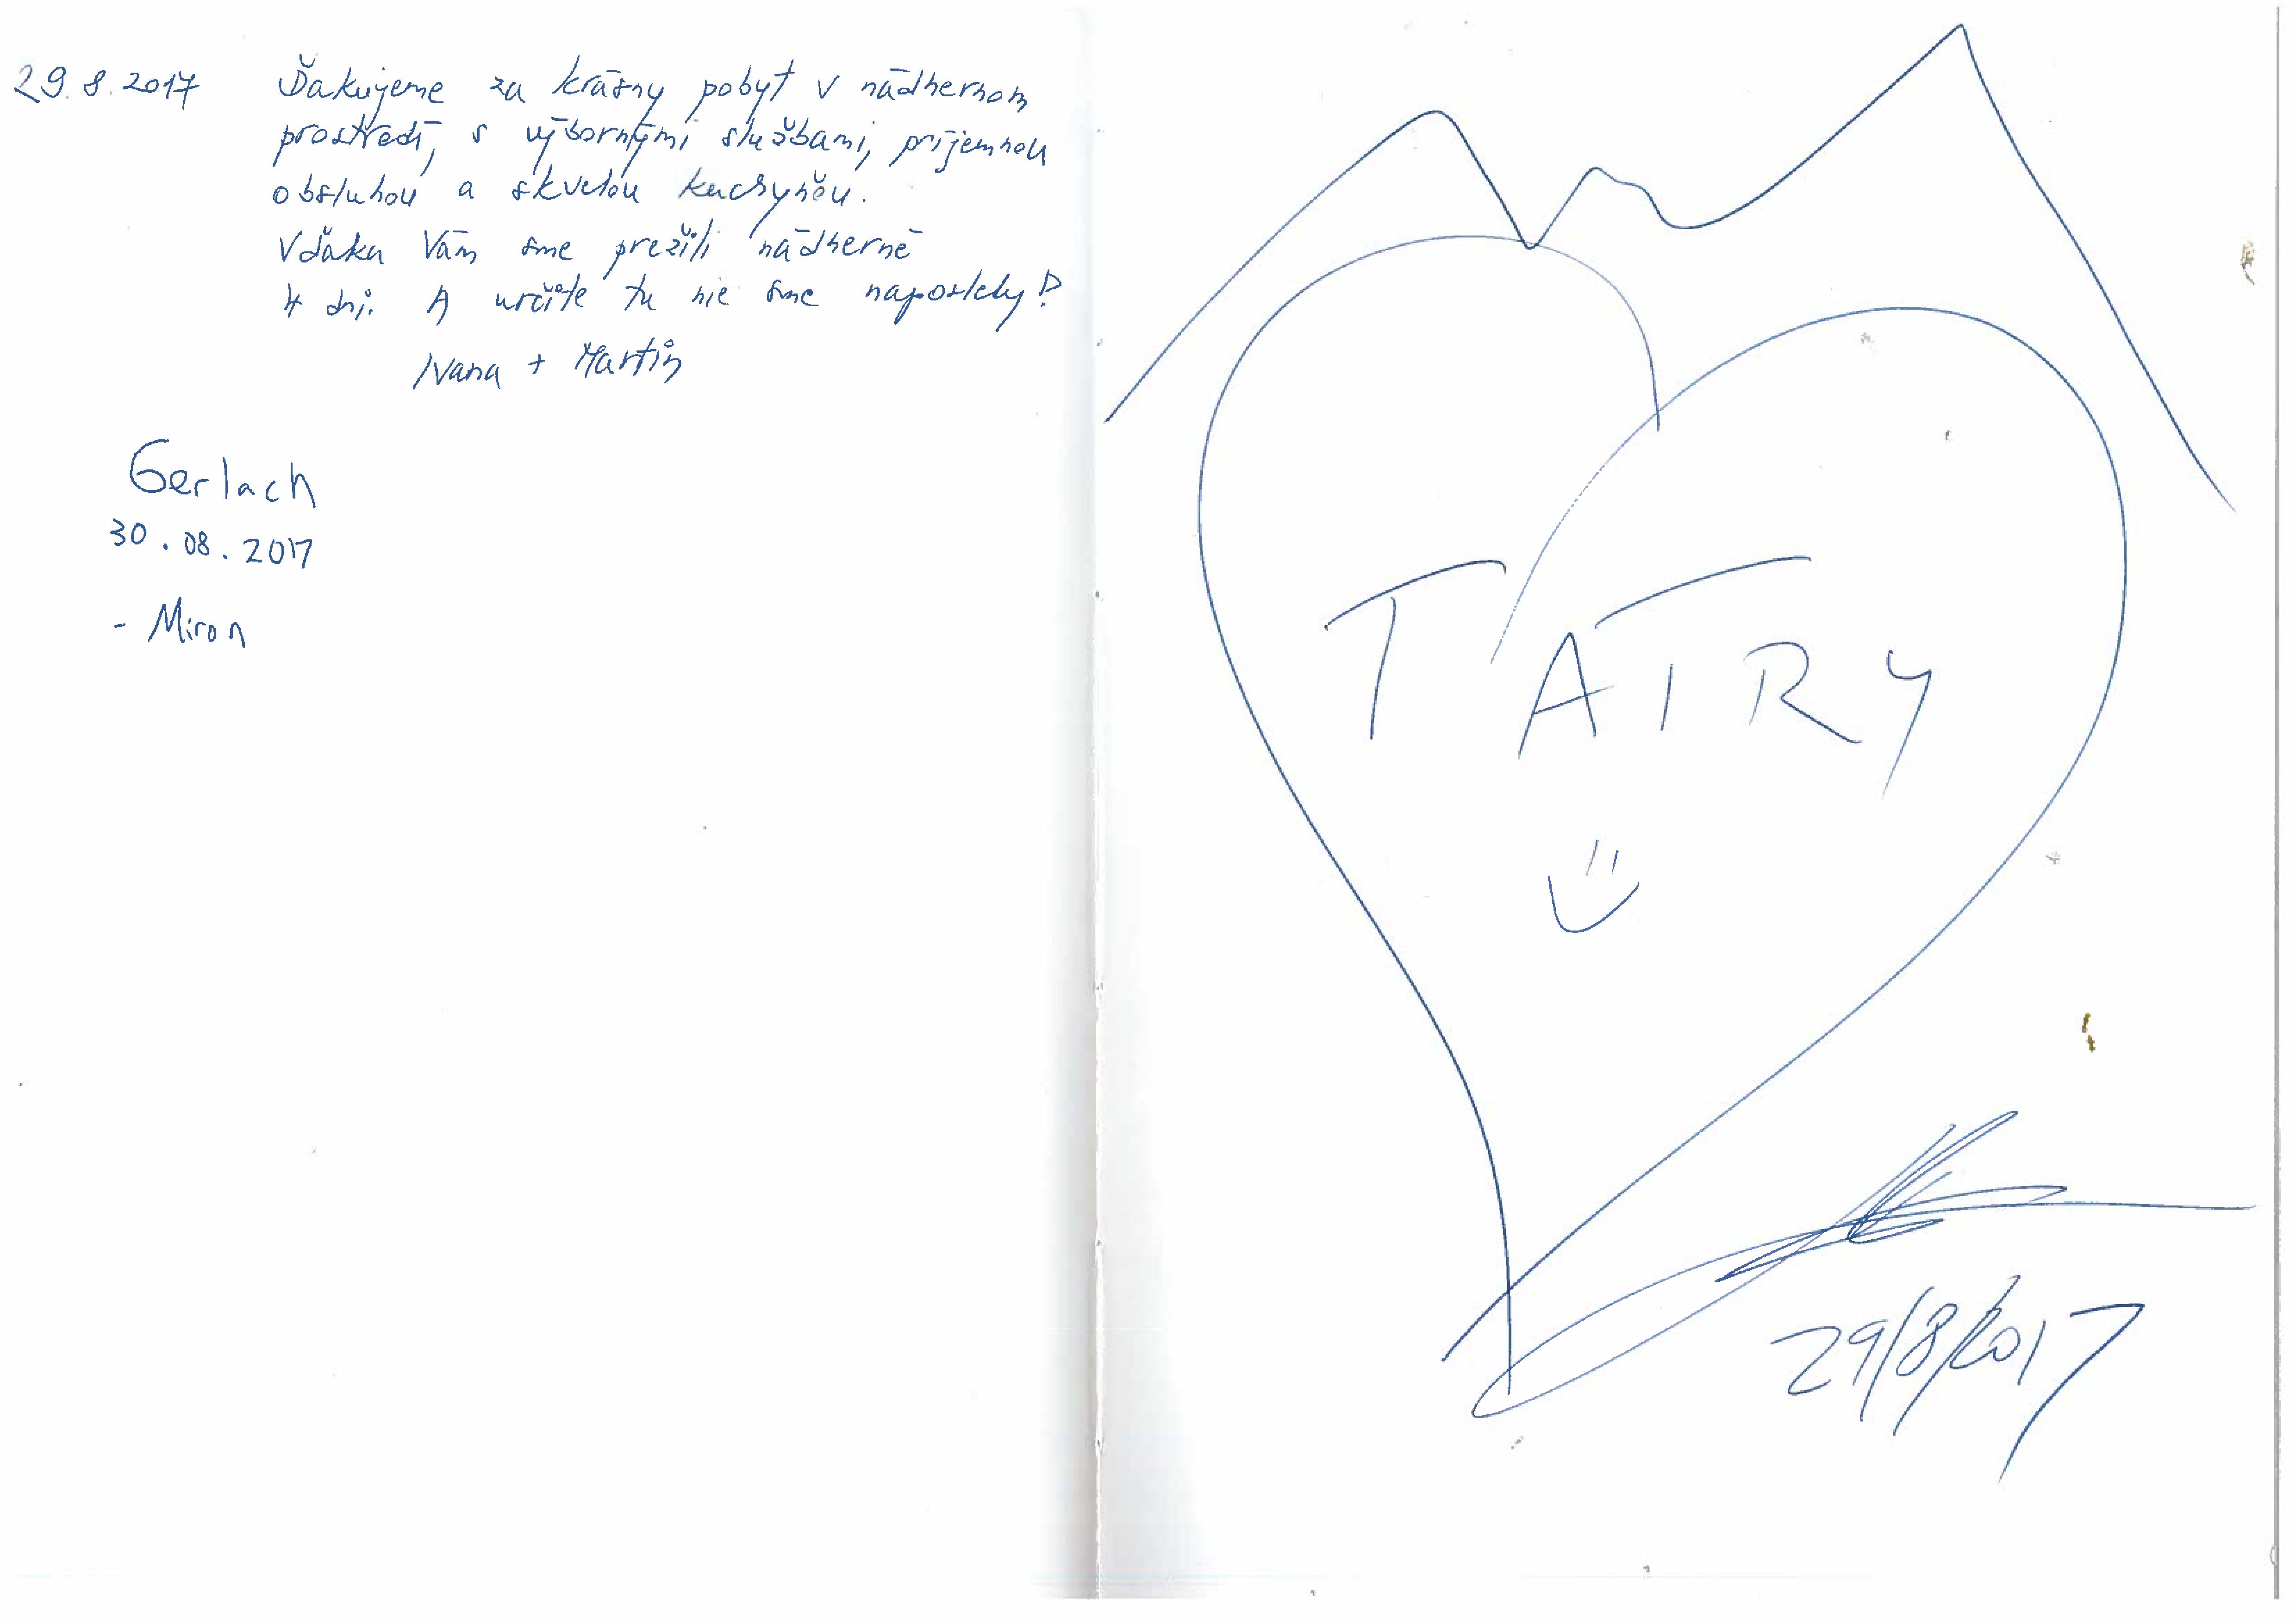 29.8.2017 Ďakujeme za krásny pobyt v nádhernom
prostredí, s výbornými službami, príjemnou
obsluhou a skvelou kuchyňou.
Vďaka Vám sme prežili nádherné
4 dni. A určite tu nie sme naposledy!
Ivana + Martin
Gerlach
30.08.2017
- Miron
TATRY
29/8/2017